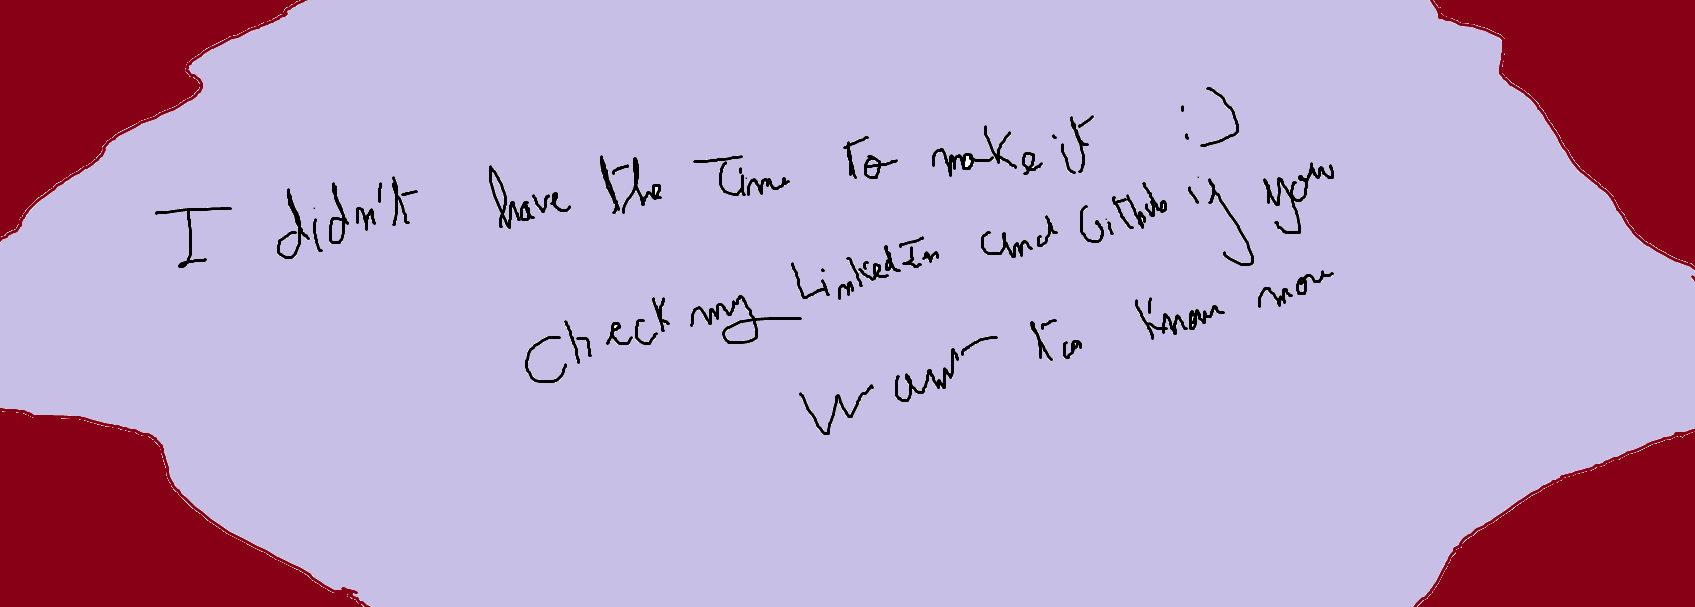 I didn't have the Time to make it :)
Check my LinkedIn and Github if you
Want to know more